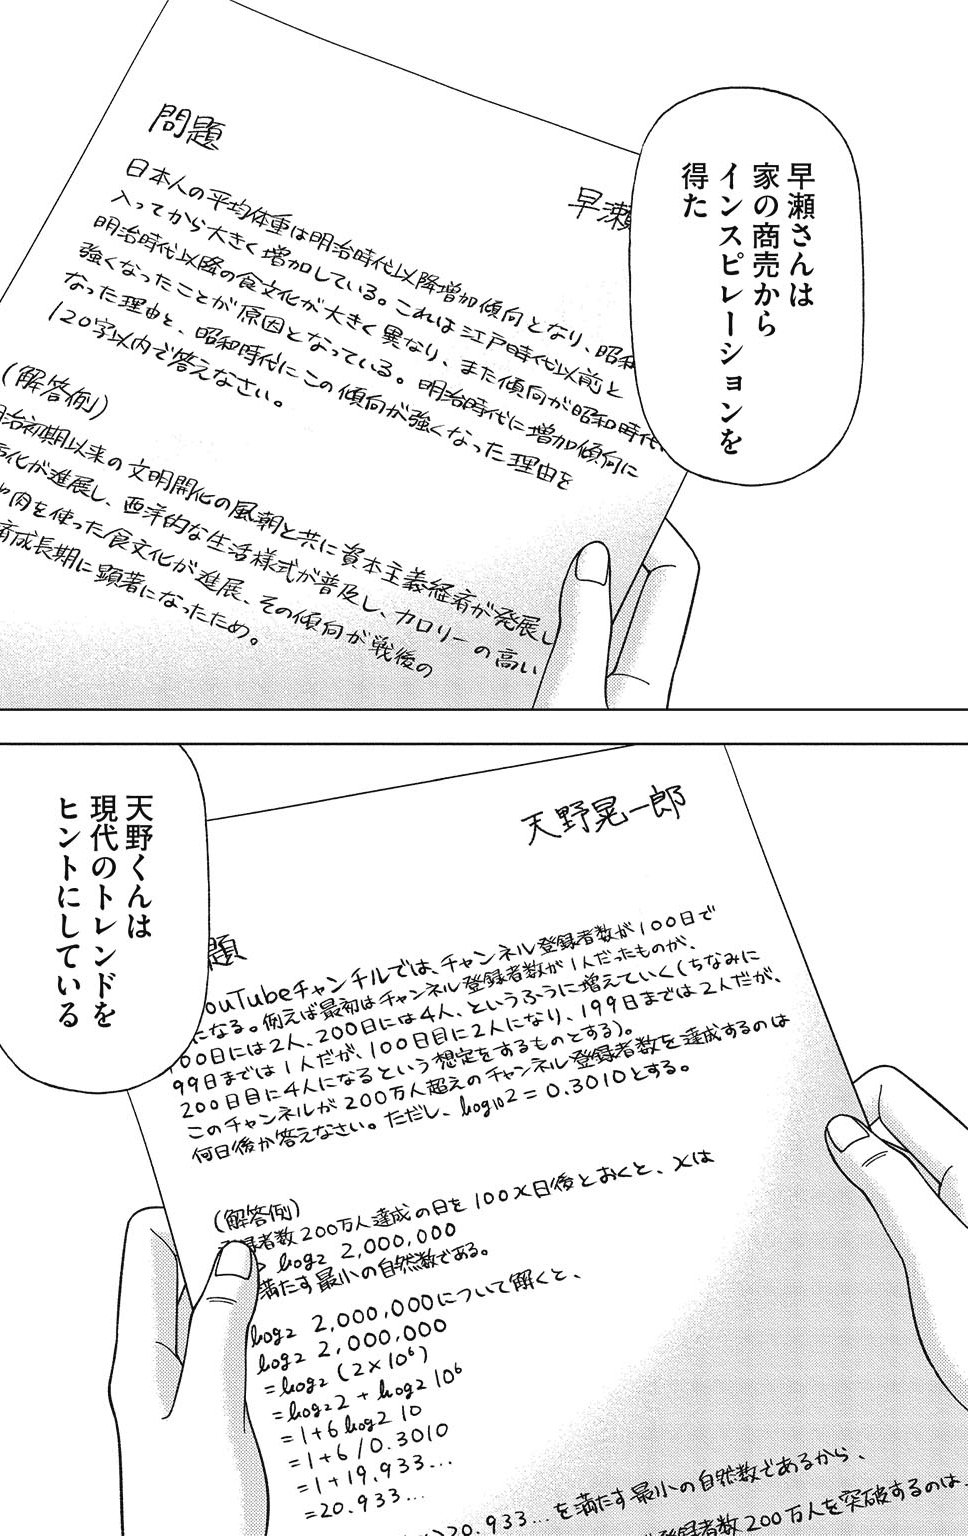 早瀬さんは
家の商売から
インスピレーションを
得た
問題
早瀬
日本人の平均体重は明治時代以降増加傾向となり、昭和
入ってから大きく増加している。これは江戸時代以前と
明治時代以降の食文化が大きく異なり、また傾向が昭和時代
強くなったことが原因となっている。明治時代に増加傾向に
なった理由と、昭和時代にこの傾向が強くなった理由を
120字以内で答えなさい。
(解答例)
治初期以来の文明開化の風潮と共に資本主義経済が発展し
化が進展し、西洋的な生活様式が普及し、カロリーの高い
肉を使った食文化が進展、その傾向が戦後の
成長期に顕著になったため。
天野くんは
現代のトレンドを
ヒントにしている
天野晃一郎
題
ouTubeチャンネルでは、チャンネル登録者数が100日で
になる。例えば最初はチャンネル登録者数が1人だったものが、
00日には2人、200日には4人、というふうに増えていく(ちなみに
99日までは1人だが、100日目に2人になり、199日までは2人だが、
200日目に4人になるという想定をするものとする)。
このチャンネルが200万人超えのチャンネル登録者数を達成するのは
何日後か答えなさい。ただし、log₁₀2=0.3010とする。
(解答例)
録者数200万人達成の日を100x日後とおくと、xは
> log₂ 2,000,000
満たす最小の自然数である。
log₂ 2,000,000について解くと、
log₂ 2,000,000
=log₂(2×10⁶)
=log₂2+log₂10⁶
=1+6log₂10
=1+6/0.3010
=1+19.933...
=20.933...
>20.933...を満たす最小の自然数であるから、
登録者数200万人を突破するのは